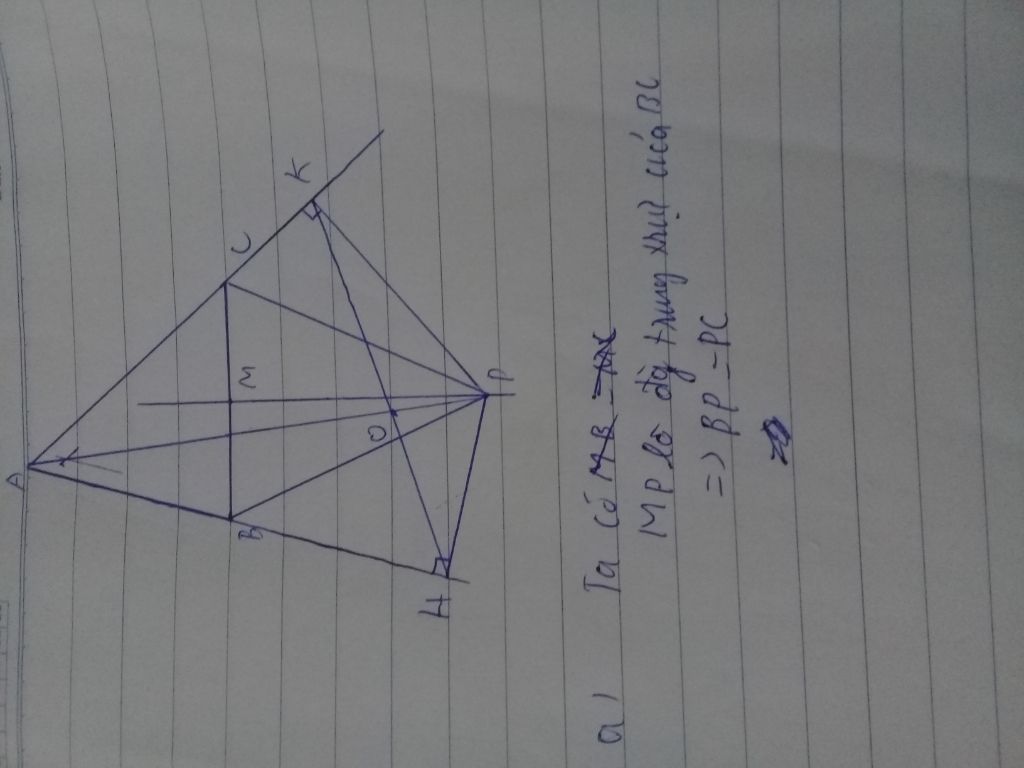 A
B
M
C
K
O
H
P
a) Ta có MB = MC
MP là đg trung trực của BC
=> BP = PC